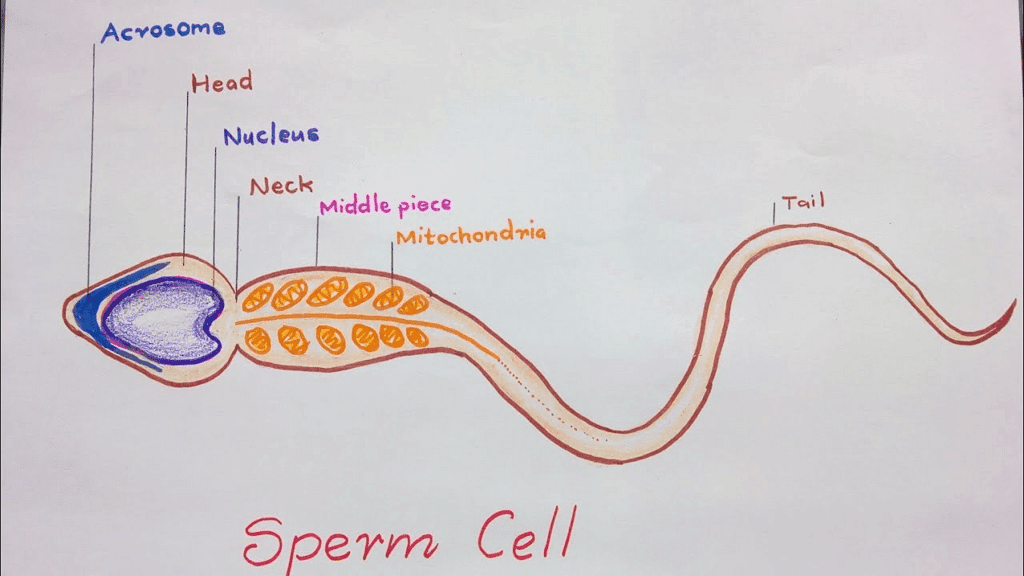 Acrosome
Head
Nucleus
Neck
Middle piece
Mitochondria
Tail
Sperm Cell